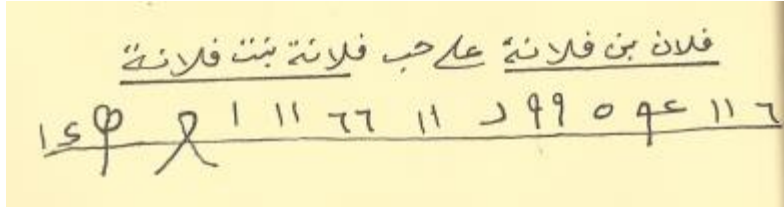 فلان بن فلانة على حب فلانة بنت فلانة
٦ ١١ ٩٤ ٥ ٩٩ د ١١ ٦٦ ١١ ١